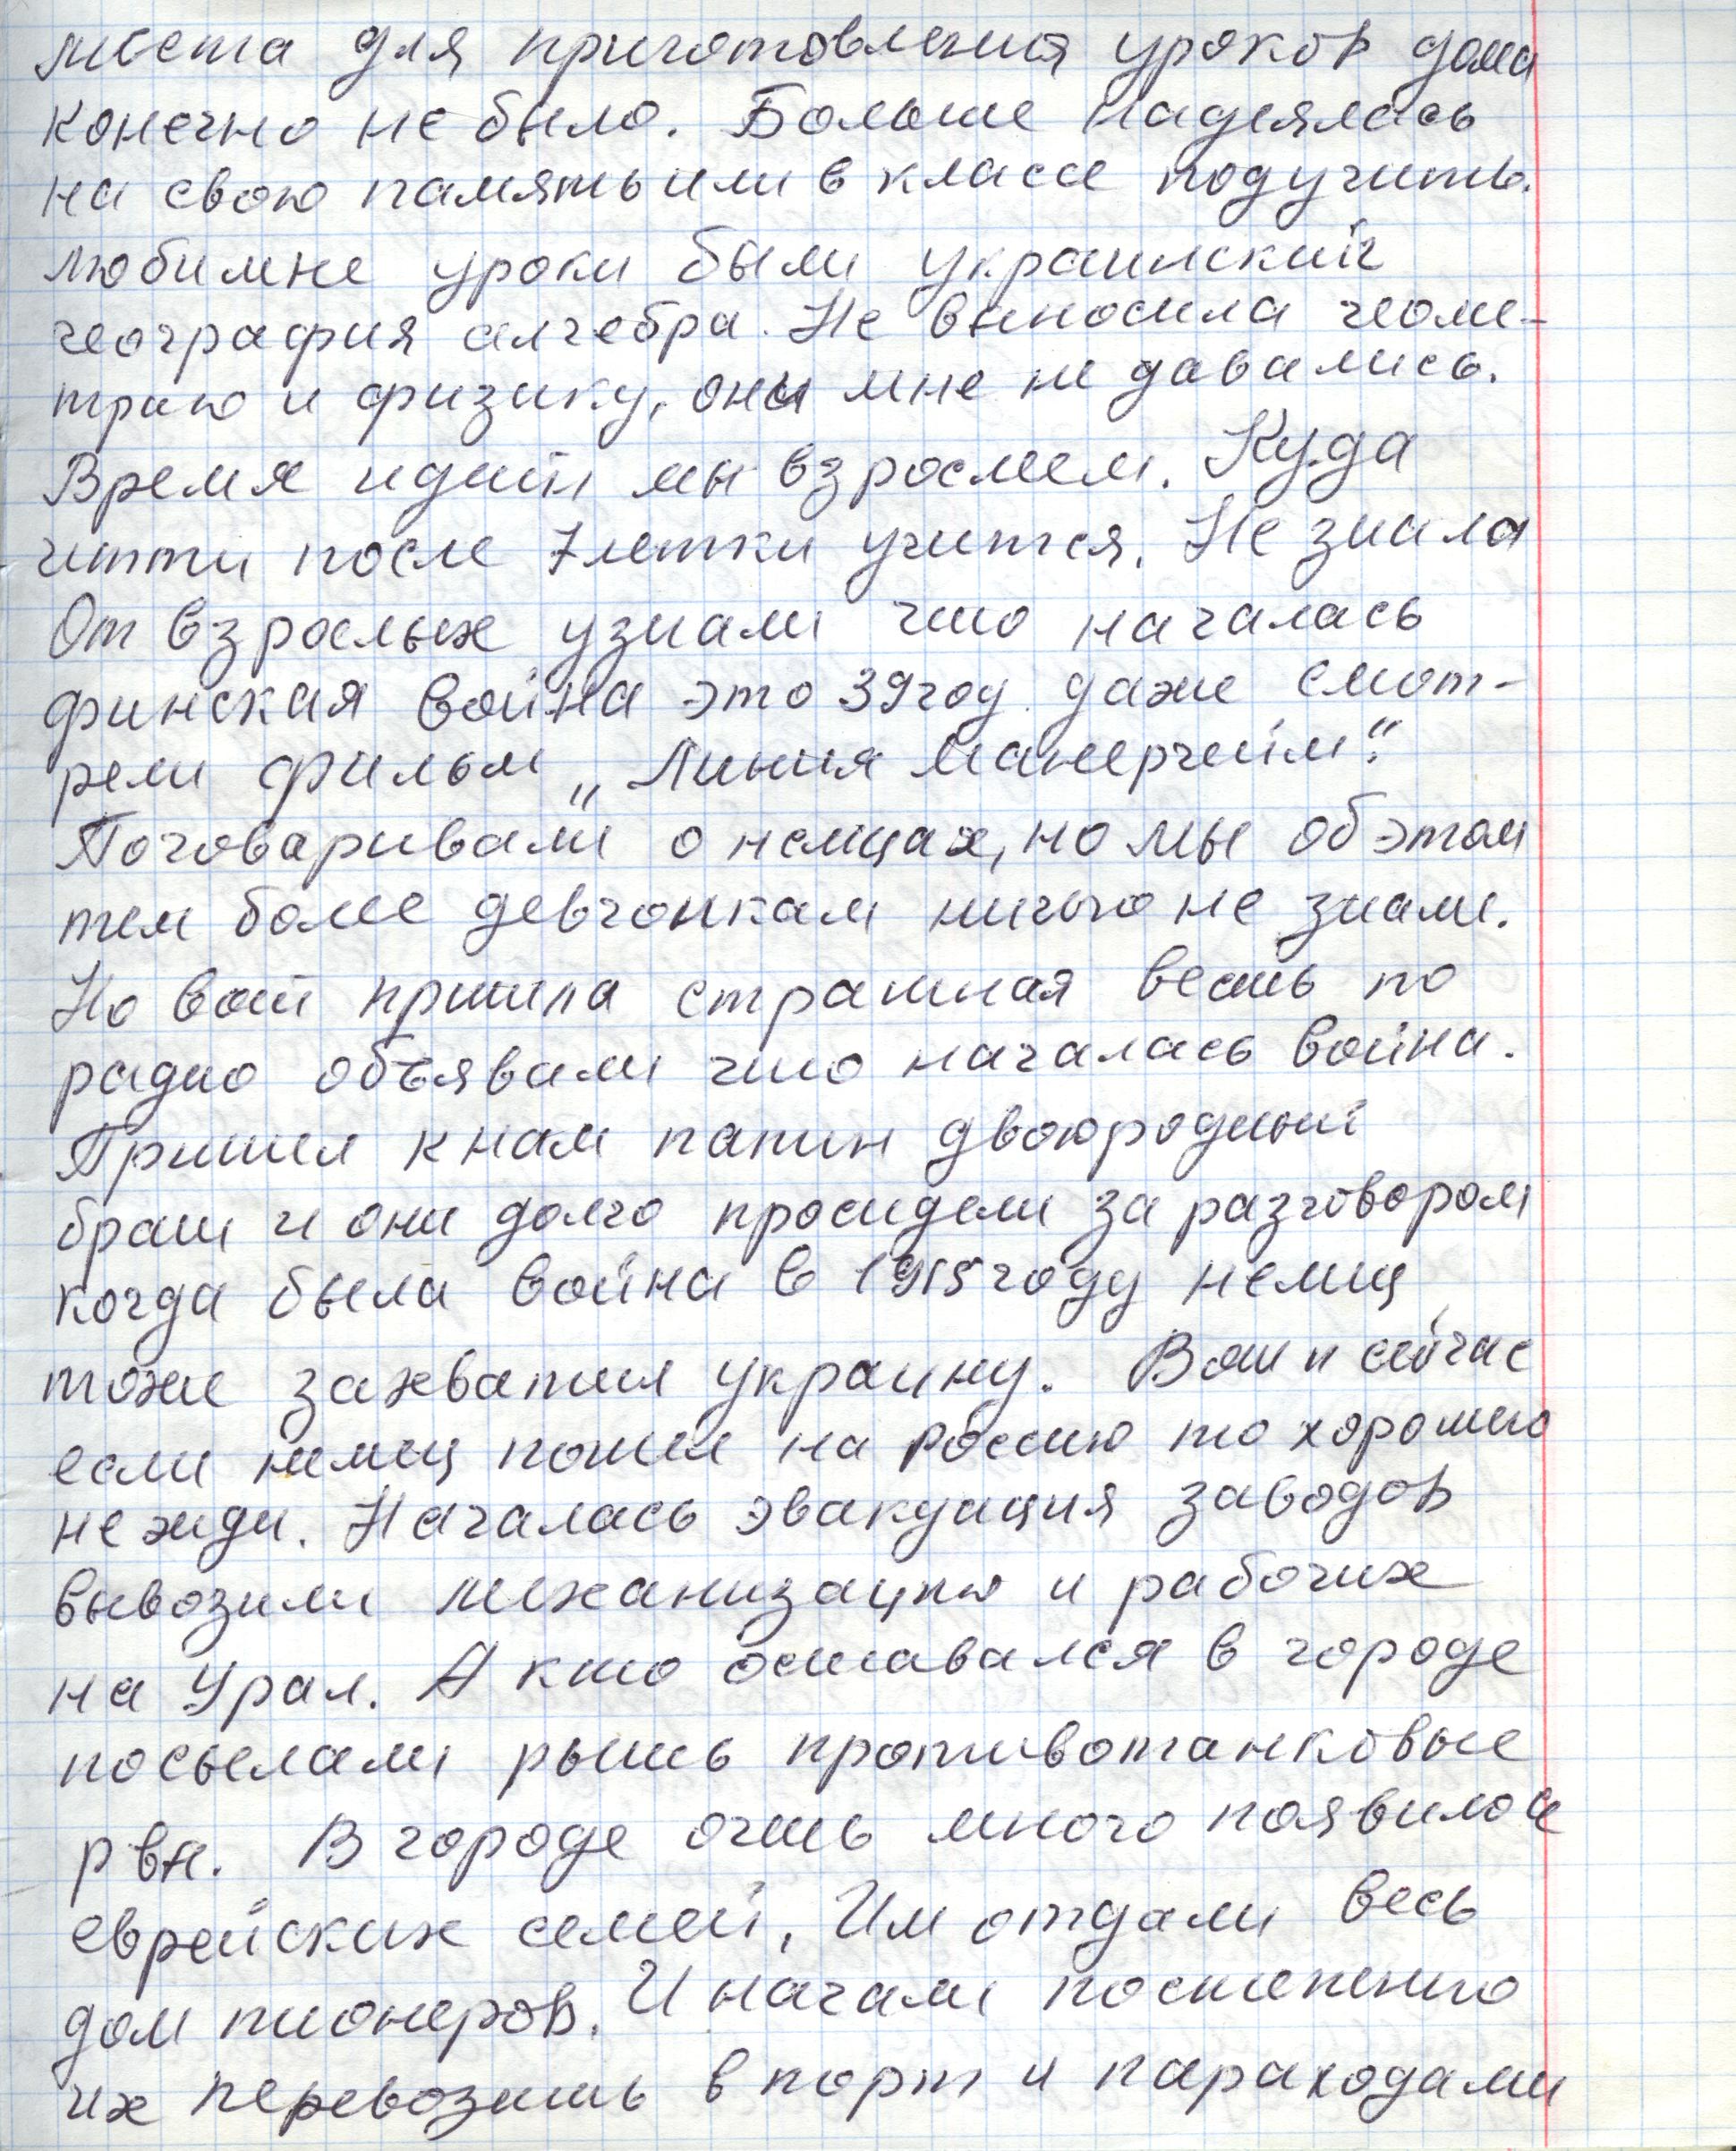 места для приготовления уроков дома
конечно не было. Больше надеялась
на свою память или в классе подучить.
любимые уроки были украинский
география алгебра. Не выносила геоме-
трию и физику, они мне не давались.
Время идёт мы взрослеем. Куда
итти после 7летки учится. Не знала
От взрослых узнали что началась
финская война это 39 год. даже смот-
рели фильм „Линия Манергейм".
Поговаривали о немцах, но мы об этом
тем более девчонкам ничего не знали.
Но вот пришла страшная весть по
радио объявали что началась война.
Пришел к нам папин двоюродный
брат и они долго просидели за разговором
когда была война в 1915 году немец
тоже захватил украину. Вот и сейчас
если немец пошел на россию то хорошего
не жди. Началась эвакуация заводов
вывозили механизацию и рабочих
на Урал. А кто оставался в городе
посылали рыть противотанковые
рвы. В городе очень много появилось
еврейских семей, Им отдали весь
дом пионеров. И начали постепенно
их перевозить в порт и параходами